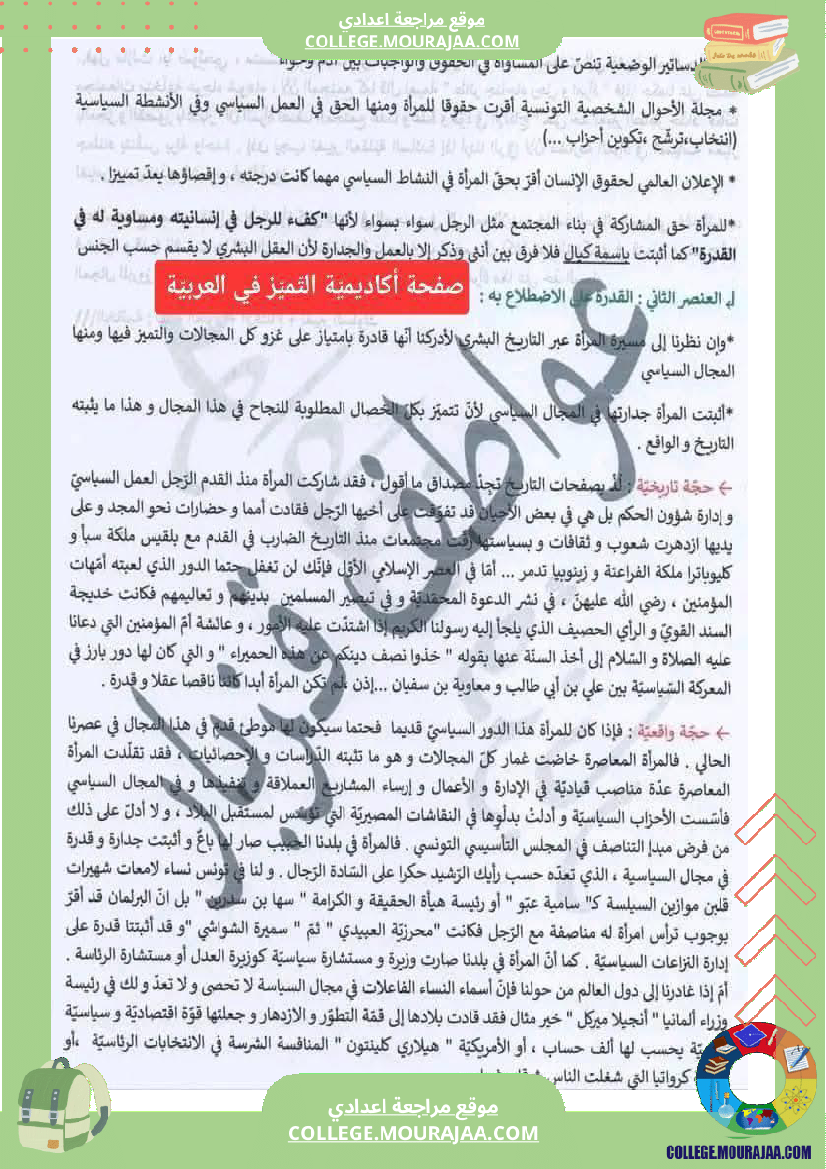 موقع مراجعة اعدادي
COLLEGE.MOURAJAA.COM
الدساتير الوضعية تنصّ على المساواة في الحقوق والواجبات بين آدم وحواء
* مجلة الأحوال الشخصية التونسية أقرت حقوقا للمرأة ومنها الحق في العمل السياسي وفي الأنشطة السياسية
(انتخاب،ترشّح ،تكوين أحزاب ...)
* الإعلان العالمي لحقوق الإنسان أقرّ بحقّ المرأة في النشاط السياسي مهما كانت درجته ، و إقصاؤها يعدّ تمييزا .
*للمرأة حق المشاركة في بناء المجتمع مثل الرجل سواء بسواء لأنها "كفء للرجل في إنسانيته ومساوية له في
القدرة" كما أثبتت باسمة كيال فلا فرق بين أنثى وذكر إلا بالعمل والجدارة لأن العقل البشري لا يقسم حسب الجنس
صفحة أكاديميّة التّميّز في العربيّة
العنصر الثاني : القدرة على الاضطلاع به :
*وإن نظرنا إلى مسيرة المرأة عبر التاريخ البشري لأدركنا أنّها قادرة بامتياز على غزو كل المجالات والتميز فيها ومنها
المجال السياسي
*أثبتت المرأة جدارتها في المجال السياسي لأنّ تتميّز بكلّ الخصال المطلوبة للنجاح في هذا المجال و هذا ما يثبته
التاريخ و الواقع .
← حجّة تاريخيّة : لُذْ بصفحات التاريخ تجدْ مصداق ما أقول ، فقد شاركت المرأة منذ القدم الرّجل العمل السياسيّ
و إدارة شؤون الحكم بل هي في بعض الأحيان قد تفوّقت على أخيها الرّجل فقادت أمما و حضارات نحو المجد و على
يديها ازدهرت شعوب و ثقافات و بسياستها رقت مجتمعات منذ التاريخ الضارب في القدم مع بلقيس ملكة سبأ و
كليوباترا ملكة الفراعنة و زينوبيا تدمر ... أمّا في العصر الإسلامي الأوّل فإنّك لن تغفل حتما الدور الذي لعبته أمّهات
المؤمنين ، رضي الله عليهنّ ، في نشر الدعوة المحمّديّة و في تبصير المسلمين بدينهم و تعاليمهم فكانت خديجة
السند القويّ و الرأي الحصيف الذي يلجأ إليه رسولنا الكريم إذا اشتدّت عليه الأمور ، و عائشة أمّ المؤمنين التي دعانا
عليه الصلاة و السّلام إلى أخذ السنّة عنها بقوله " خذوا نصف دينكم عن هذه الحميراء " و التي كان لها دور بارز في
المعركة السّياسيّة بين علي بن أبي طالب و معاوية بن سفيان ...إذن ،لم تكن المرأة أبدا كائنا ناقصا عقلا و قدرة .
← حجّة واقعيّة : فإذا كان للمرأة هذا الدور السياسيّ قديما فحتما سيكون لها موطئ قدم في هذا المجال في عصرنا
الحالي . فالمرأة المعاصرة خاضت غمار كلّ المجالات و هو ما تثبته الدّراسات و الإحصائيات ، فقد تقلّدت المرأة
المعاصرة عدّة مناصب قياديّة في الإدارة و الأعمال و إرساء المشاريع العملاقة و تنفيذها و في المجال السياسي
فأسّست الأحزاب السياسيّة و أدلتْ بدلْوها في النقاشات المصيريّة التي تؤسّس لمستقبل البلاد ، و لا أدلّ على ذلك
من فرض مبدإ التناصف في المجلس التأسيسي التونسي . فالمرأة في بلدنا الحبيب صار لها باعٌ و أثبتت جدارة و قدرة
في مجال السياسية ، الذي تعدّه حسب رأيك الرّشيد حكرا على السّادة الرّجال . و لنا في تونس نساء لامعات شهيرات
قلبن موازين السيلسة كـ" سامية عبّو " أو رئيسة هيأة الحقيقة و الكرامة " سها بن سدرين " بل انّ البرلمان قد أقرّ
بوجوب ترأس امرأة له مناصفة مع الرّجل فكانت "محرزيّة العبيدي " ثمّ " سميرة الشواشي "و قد أثبتتا قدرة على
إدارة النزاعات السياسيّة . كما أنّ المرأة في بلدنا صارت وزيرة و مستشارة سياسيّة كوزيرة العدل أو مستشارة الرئاسة .
أمّ إذا غادرنا إلى دول العالم من حولنا فإنّ أسماء النساء الفاعلات في مجال السياسة لا تحصى و لا تعدّ و لك في رئيسة
وزراء ألمانيا " أنجيلا ميركل " خير مثال فقد قادت بلادها إلى قمّة التطوّر و الازدهار و جعلتها قوّة اقتصاديّة و سياسيّة
يحسب لها ألف حساب ، أو الأمريكيّة " هيلاري كلينتون " المنافسة الشرسة في الانتخابات الرئاسيّة ،أو
كرواتيا التي شغلت الناس
عواطف قرنبار
موقع مراجعة اعدادي
COLLEGE.MOURAJAA.COM
COLLEGE.MOURAJAA.COM